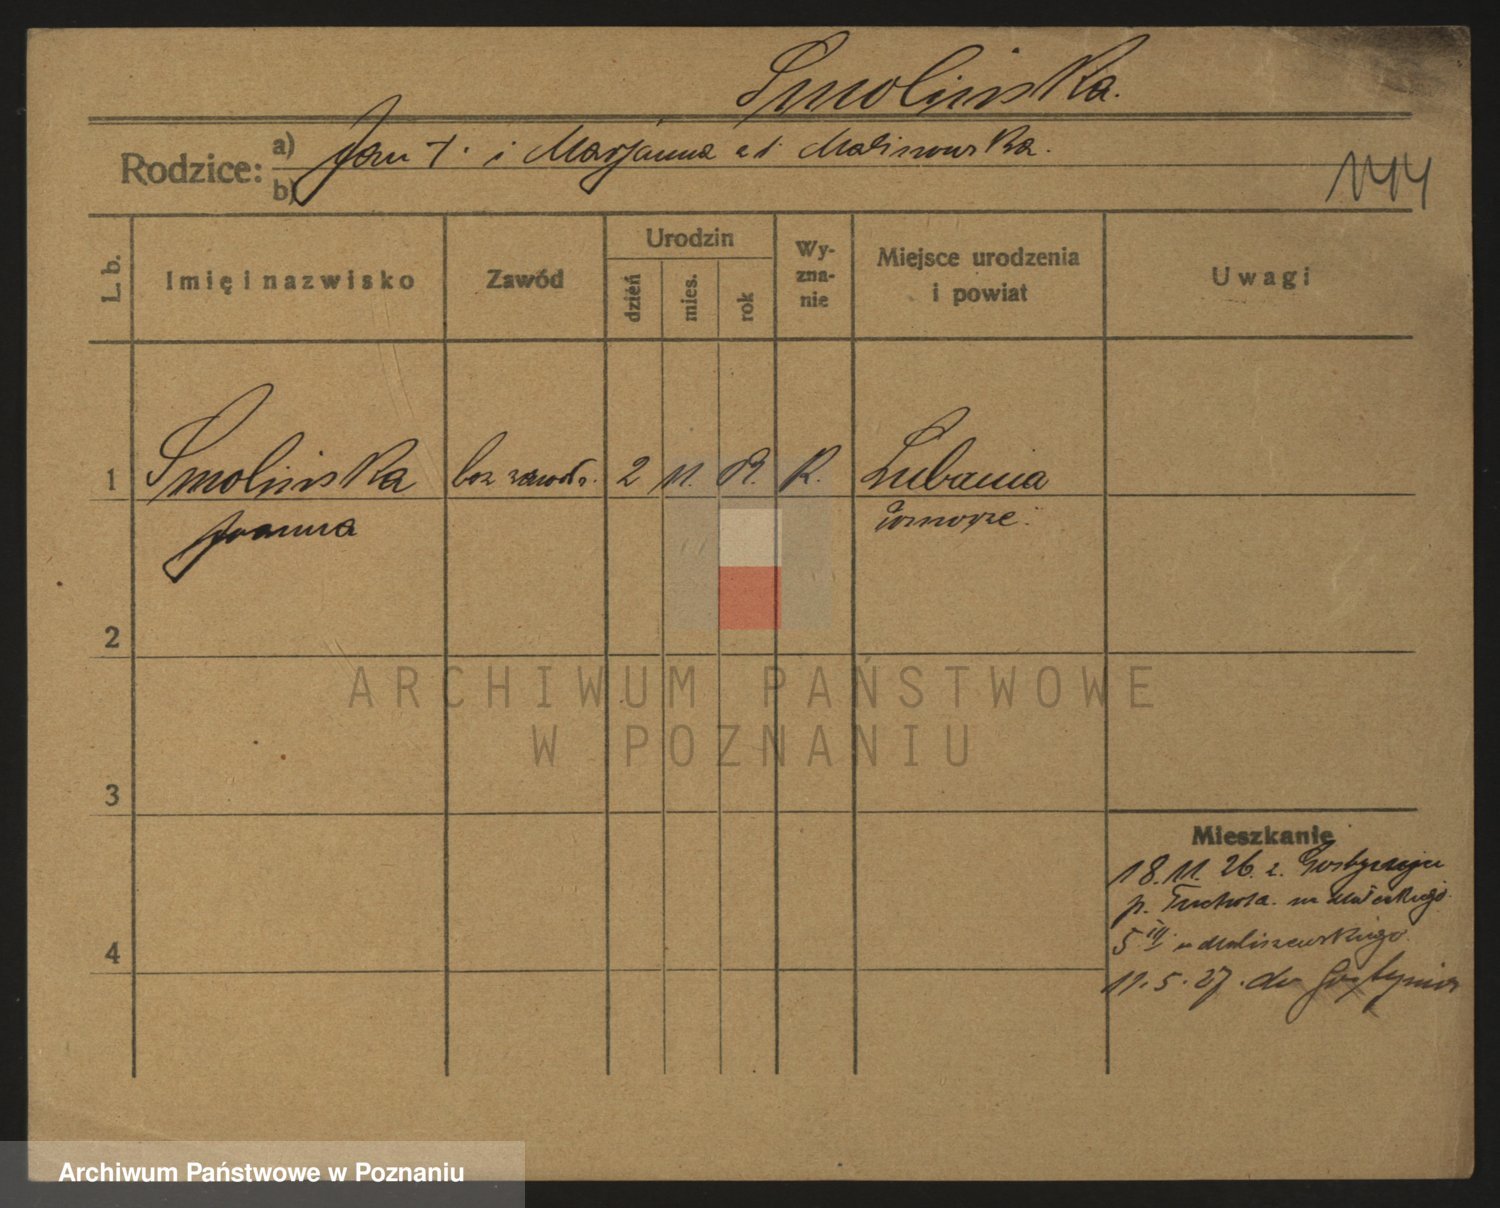 Smolińska.
Rodzice: a) Jan †. i Marjanna z d. Malinowska.
b)
L. b.
Imię i nazwisko
Zawód
Urodzin
dzień
mies.
rok
Wy-
zna-
nie
Miejsce urodzenia
i powiat
Uwagi
1 Smolińska bez zawodu. 2 11. R. K. Lubania
Joanna
2
3
4
Mieszkanie
18. 11. 26. z. Gostycyna
p. Tuchola.
5 III Maliszewskiego.
11. 5. 27. do
ARCHIWUM PAŃSTWOWE
W POZNANIU
Archiwum Państwowe w Poznaniu